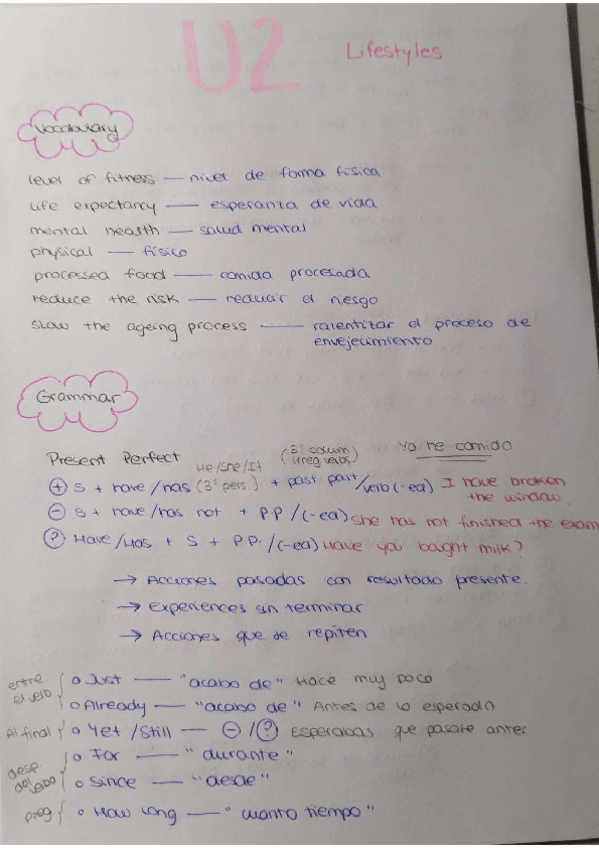 U2 Lifestyles
Vocabulary
level of fitness — nivel de forma física
life expectancy — esperanza de vida
mental health — salud mental
physical — físico
processed food — comida procesada
reduce the risk — reducir el riesgo
slow the ageing process — ralentizar el proceso de
envejecimiento
Grammar
Present Perfect He/She/It (3ª column irreg verbs) Yo he comido
+ S + have/has (3ª pers.) + past part/verb(-ed) I have broken
the window
- S + have/has not + PP/(-ed) She has not finished the exam
? Have/Has + S + P.P./(-ed) Have you bought milk?
→ Acciones pasadas con resultado presente.
→ Experiences sin terminar
→ Acciones que se repiten
entre el verb { o Just — "acabo de" Hace muy poco
o Already — "acabo de" Antes de lo esperado
Al final } o Yet/Still — - / ? Esperabas que pasase antes
desp del verbo { o For — "durante"
o Since — "desde"
preg { o How long — "cuanto tiempo"